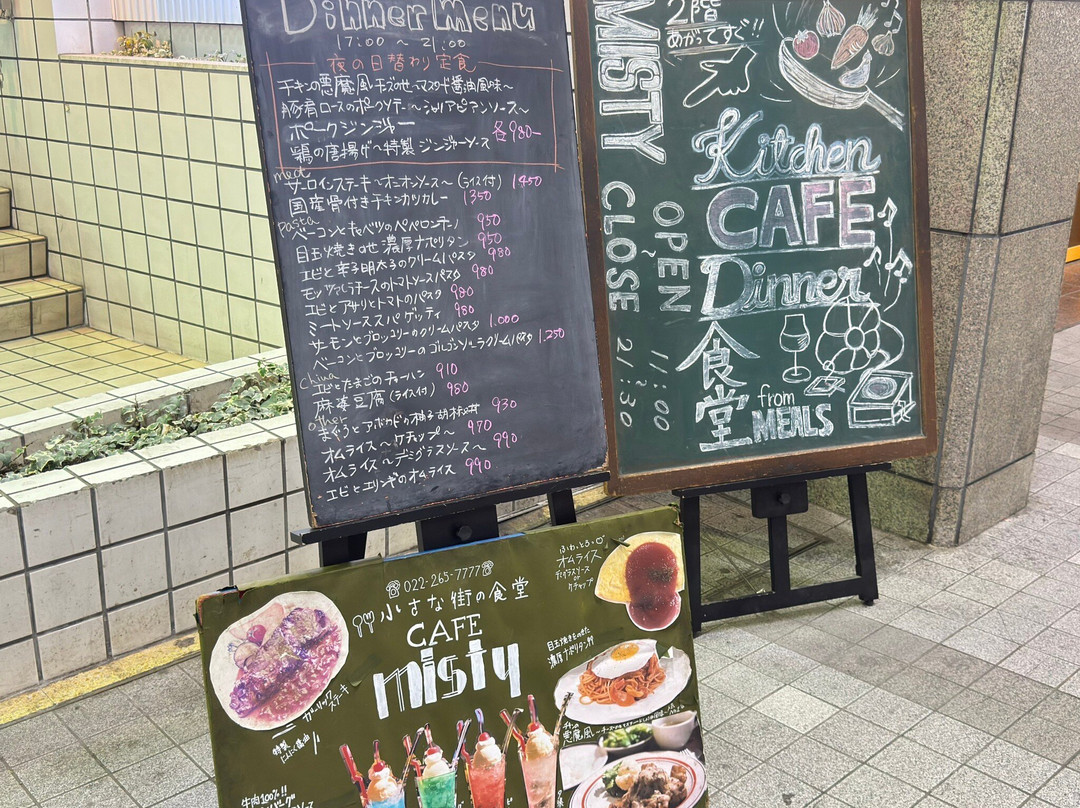 Dinner Menu
17:00 ~ 21:00
夜の日替わり定食
チキンの悪魔風チーズのせ〜マスタード醤油風味〜
豚肩ロースのポークソテー〜シャリアピアンソース〜
ポークジンジャー
鶏の唐揚げ〜特製ジンジャーソース
各980-
meat
サーロインステーキ〜オニオンソース〜(ライス付) 1450
国産骨付きチキンカツカレー 1350
Pasta
ベーコンとキャベツのペペロンチーノ 950
目玉焼きのせ濃厚ナポリタン 950
エビと辛子明太子のクリームパスタ 980
モッツァレラチーズのトマトソースパスタ 980
エビとアサリとトマトのパスタ 980
ミートソーススパゲッティ 980
サーモンとブロッコリーのクリームパスタ 1.000
ベーコンとブロッコリーのゴルゴンゾーラクリームパスタ 1.250
China
エビとたまごのチャーハン 910
麻婆豆腐(ライス付) 950
other
まぐろとアボカドの柚子胡椒丼 930
オムライス〜ケチャップ〜 970
オムライス〜デミグラスソース〜 990
エビとエリンギのオムライス 990
MISTY
2階
あがってすぐ!!
Kitchen
CAFE
Dinner
食堂
from
MEALS
OPEN 11:00
~
CLOSE 21:30
022-265-7777
小さな街の食堂
CAFE
misty
ふわとろ
オムライス
デミグラスソース
or
ケチャップ
目玉焼きのせ
濃厚ナポリタン
チキンの
悪魔風
ガーリックステーキ
特製
にんにく醤油
牛肉100%!!